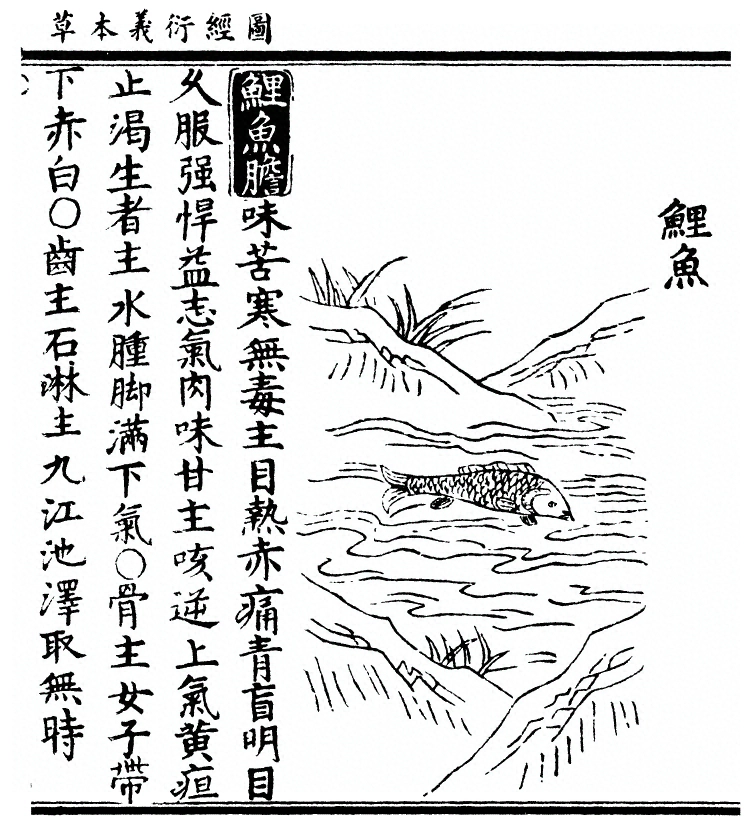 圖經衍義本草
鯉魚
鯉魚膽味苦寒無毒主目熱赤痛青盲明目
久服强悍益志氣肉味甘主咳逆上氣黄疸
止渴生者主水腫脚滿下氣○骨主女子帶
下赤白○齒主石淋生九江池澤取無時